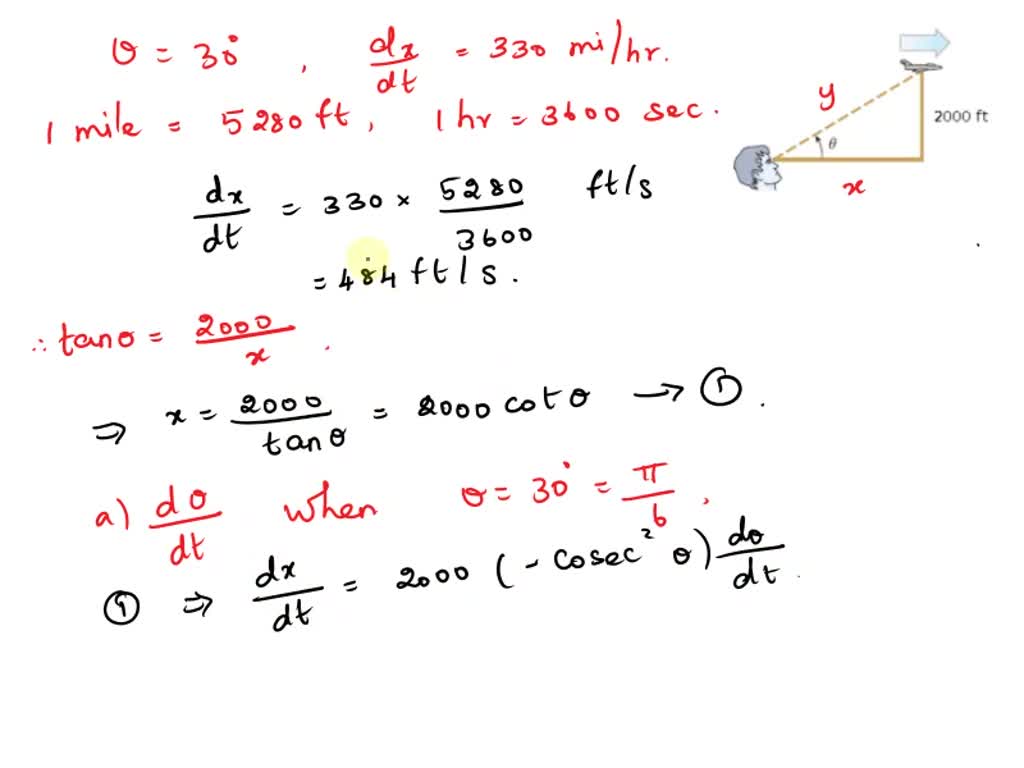 θ = 30°, dx/dt = 330 mi/hr.
1 mile = 5280 ft, 1 hr = 3600 sec.
y
2000 ft
θ
x
dx/dt = 330 × 5280/3600 ft/s
= 484 ft/s.
∴ tan θ = 2000/x.
⇒ x = 2000/tan θ = 2000 cot θ → ①.
a) dθ/dt when θ = 30° = π/6,
① ⇒ dx/dt = 2000 (- cosec² θ) dθ/dt.